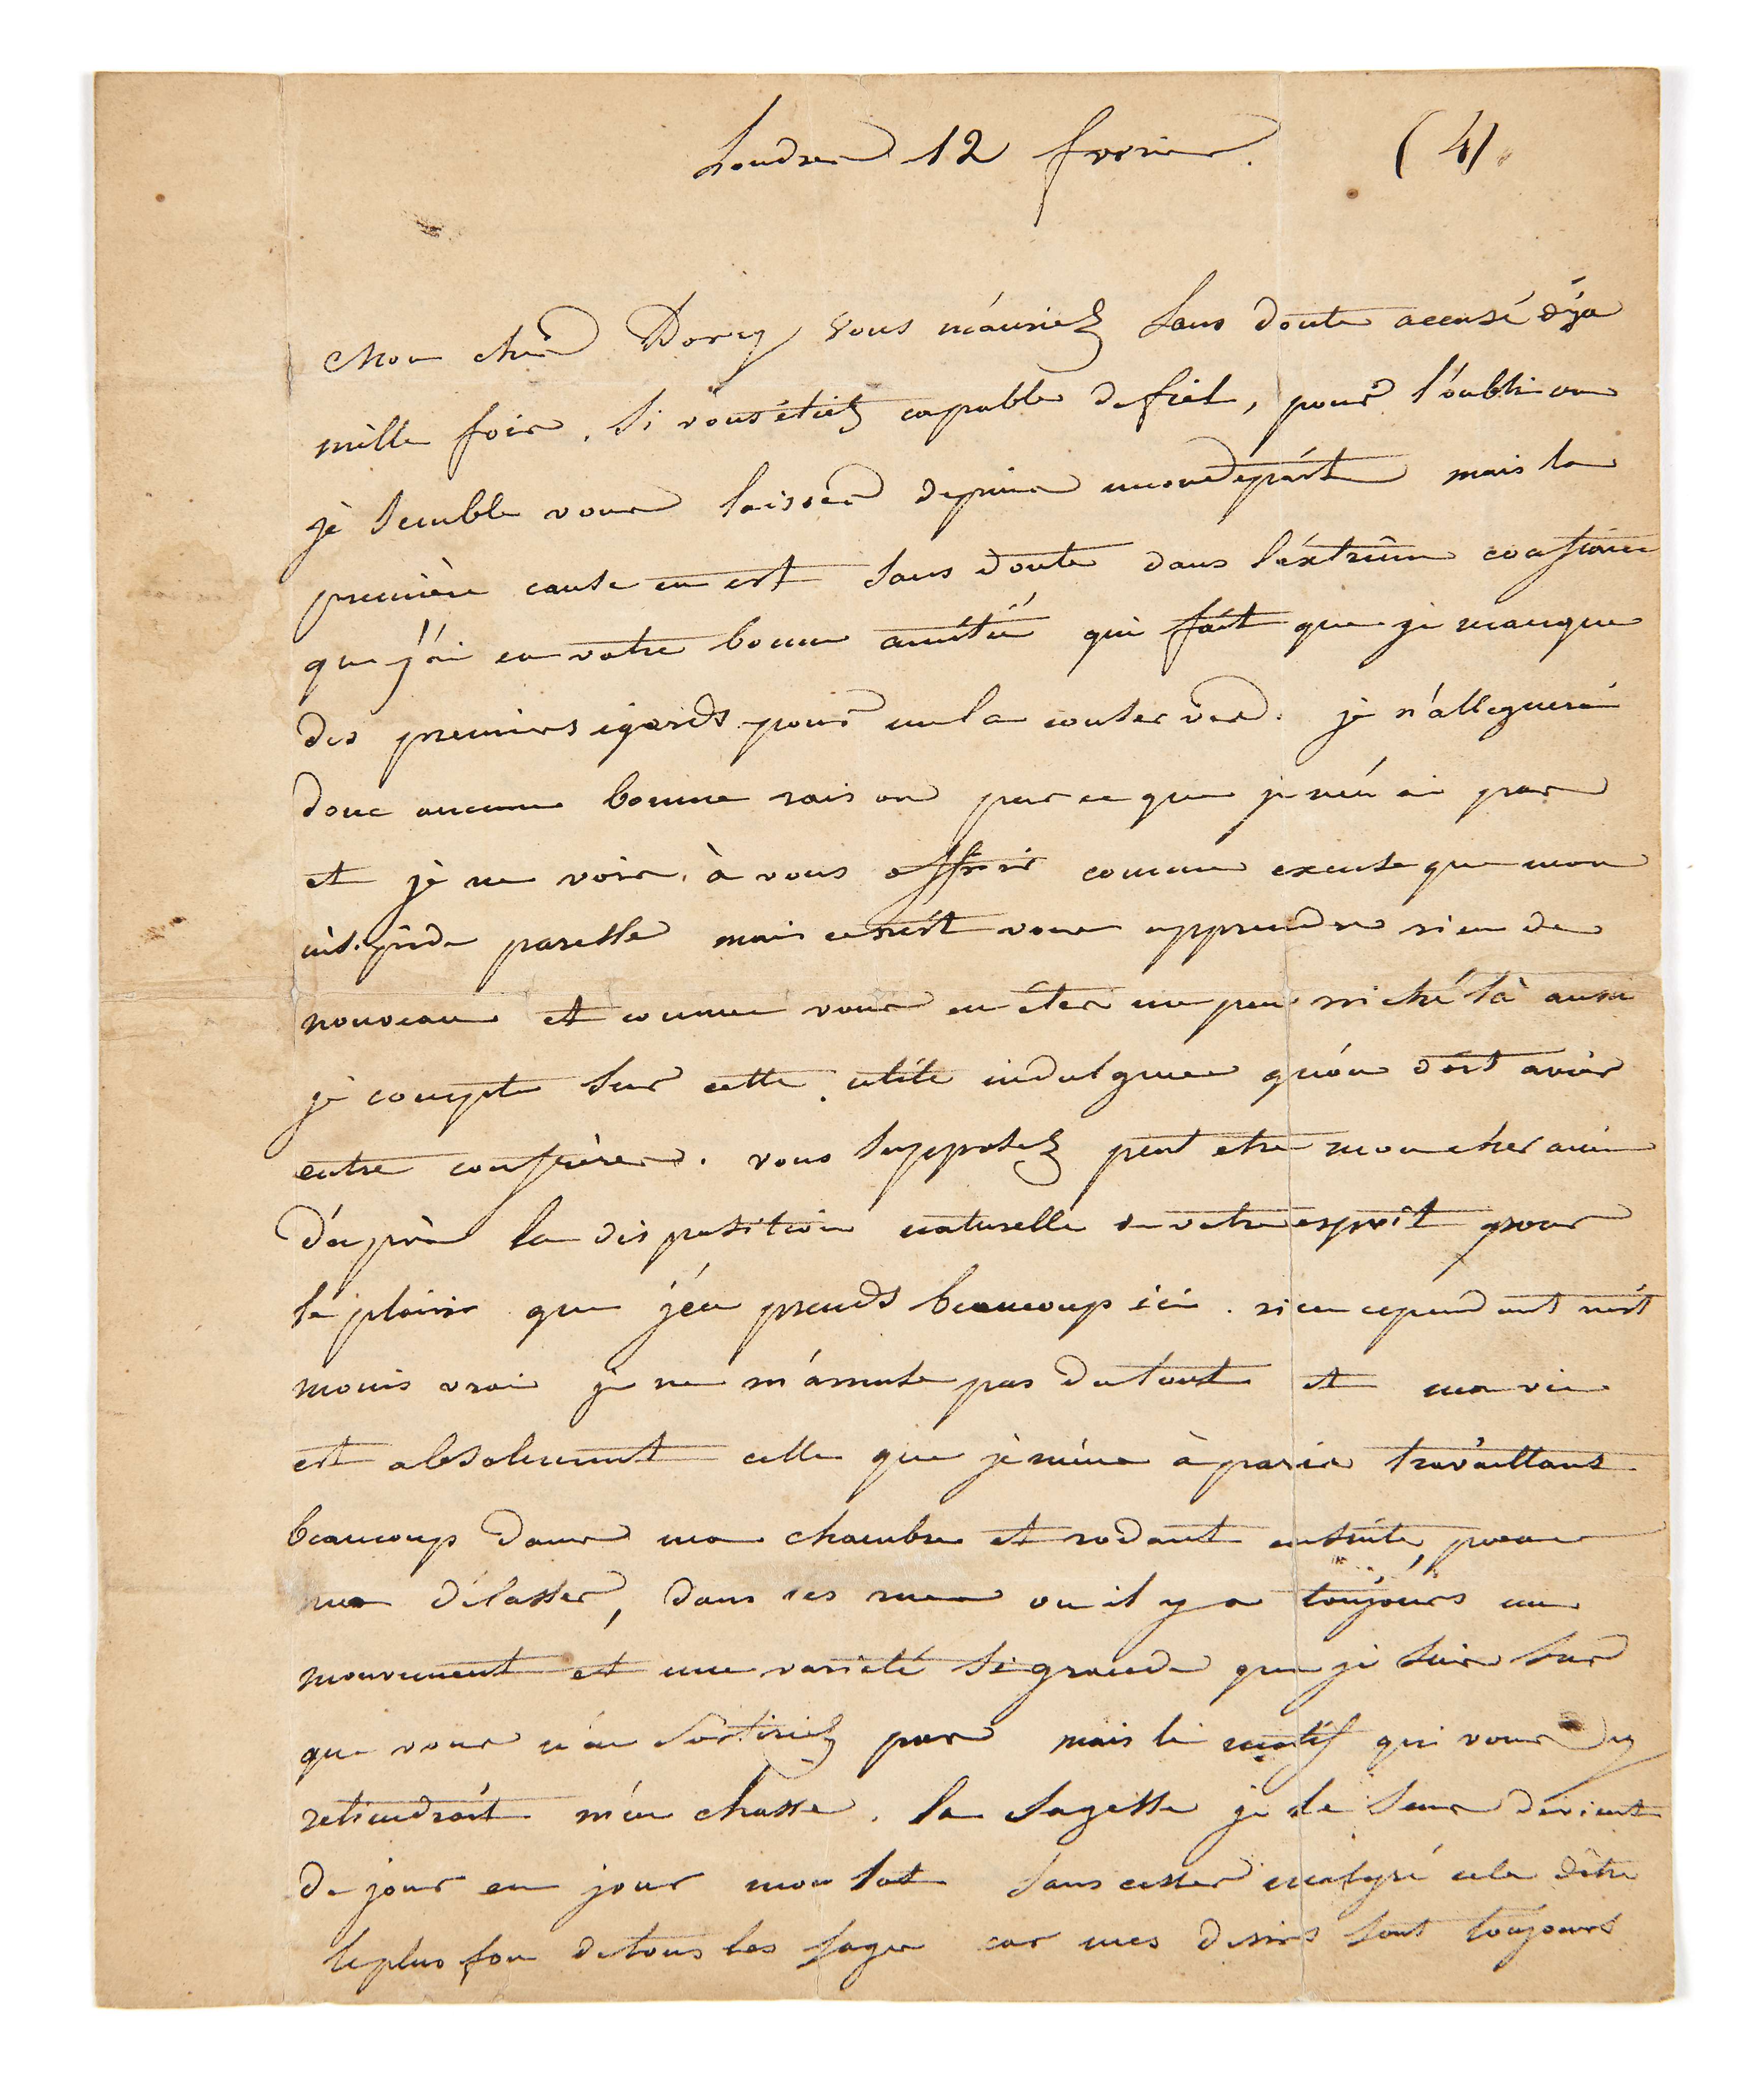 Londres 12 fvrier. (4).
Mon cher Dorcy vous m'auriez sans doute accusé déja
mille fois, si vous étiez capable de fiel, pour l'oubli ou
je semble vous laisser depuis mon départ mais la
première cause en est sans doute dans l'extrême confiance
que j'ai en votre bonne amitié qui fait que je manque
des premiers égards pour me la conserver. je n'alleguerai
donc aucune bonne raison parce que je n'en ai pas
et je ne vois à vous offrir comme excuse que mon
insipide paresse mais ce n'est vous apprendre rien de
nouveau et comme vous en êtes un peu niché là aussi
je compte sur cette utile indulgence qu'on doit avoir
entre confrères. vous supposez peut etre mon cher ami
d'après la disposition naturelle de votre esprit pour
le plaisir que j'en prends beaucoup ici. rien cependant n'est
moins vrai je ne m'amuse pas du tout et ma vie
est absolument celle que je mène à paris travaillant
beaucoup dans ma chambre et rodant ensuite, pour
me délasser, dans les rues ou il y a toujours un
mouvement et une varieté si grande que je suis sur
que vous n'en sortiriez pas mais le motif qui vous y
retiendrait m'en chasse. la sagesse je le sens devient
de jour en jour mon lot sans cesser malgré cela d'être
le plus fou de tous les sages car mes desirs sont toujours